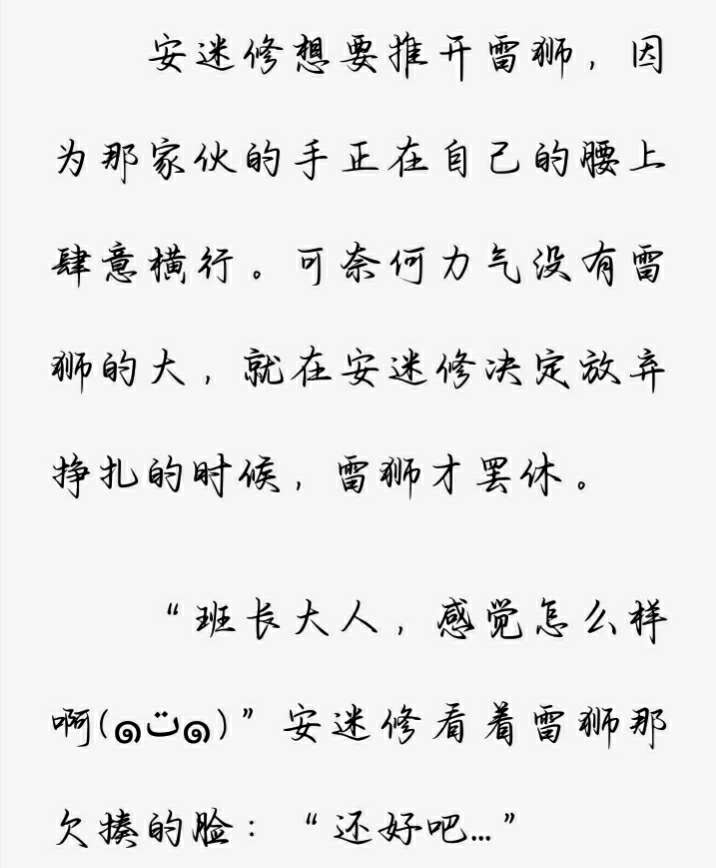 安迷修想要推开雷狮，因
为那家伙的手正在自己的腰上
肆意横行。可奈何力气没有雷
狮的大，就在安迷修决定放弃
挣扎的时候，雷狮才罢休。
“班长大人，感觉怎么样
啊(๑ت๑)”安迷修看着雷狮那
欠揍的脸：“还好吧…”